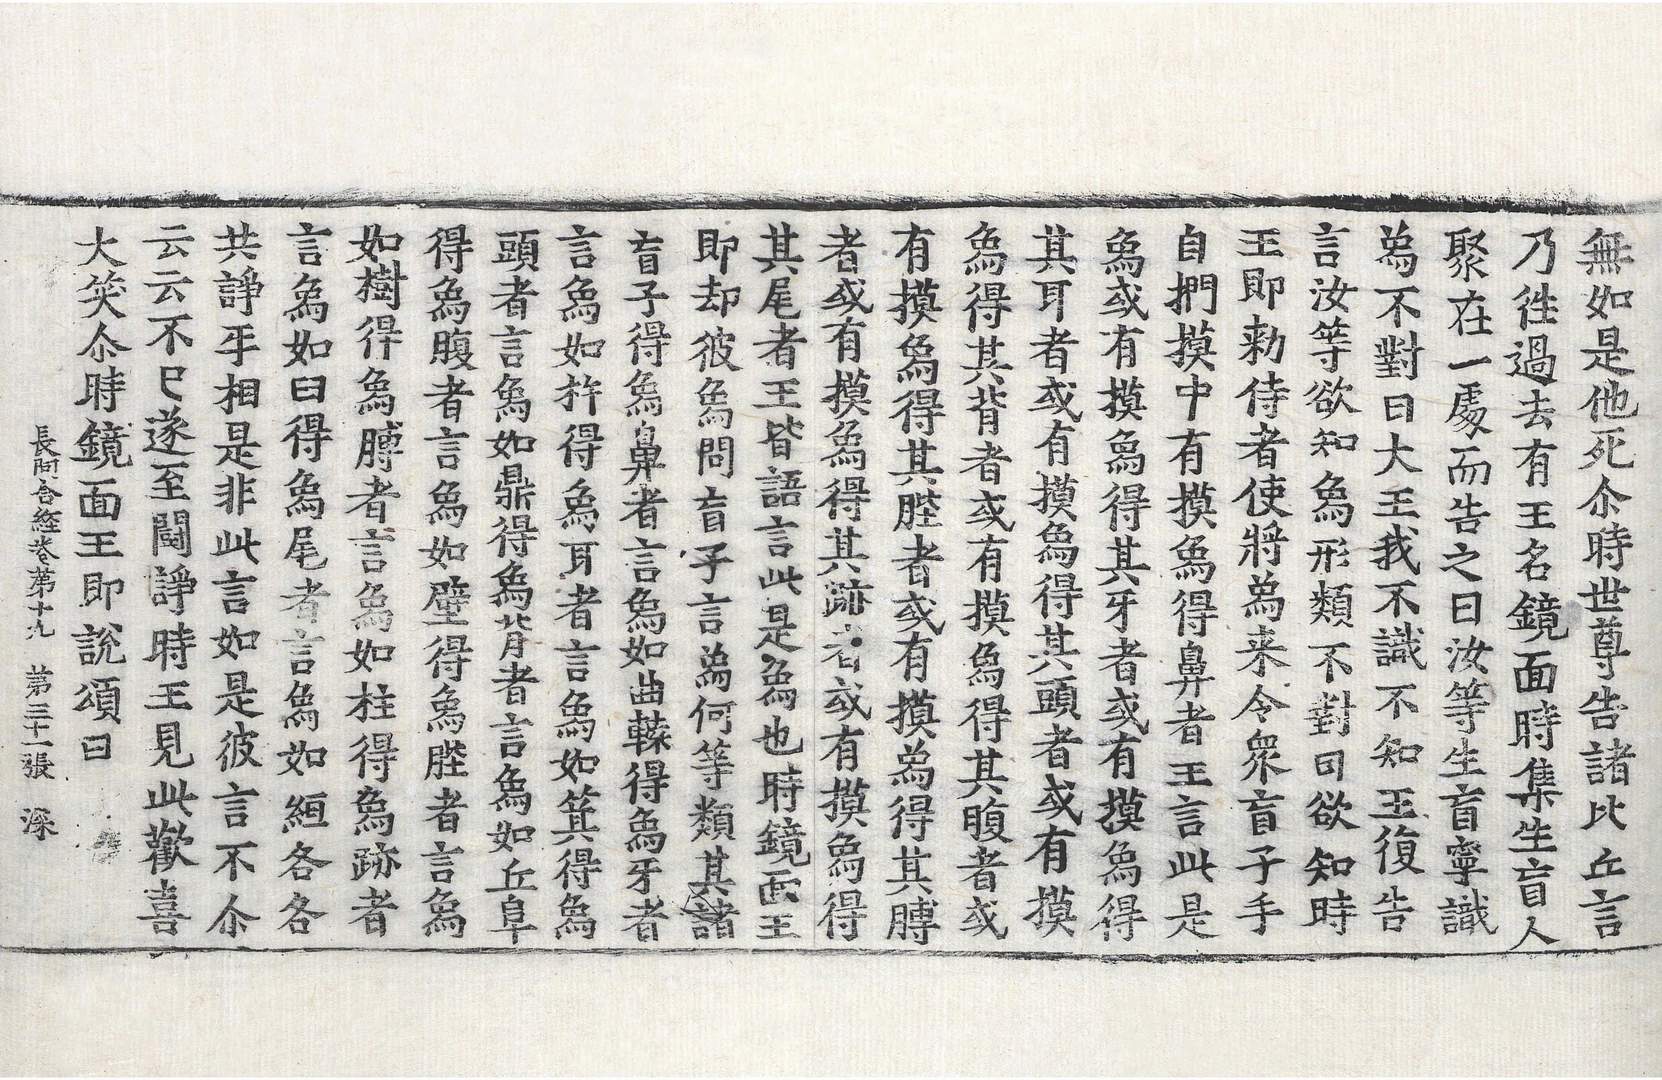 無如是他死尒時世尊告諸比丘言
乃徃過去有王名鏡面時集生盲人
聚在一處而告之曰汝等生盲寧識
為不對曰大王我不識不知王復告
言汝等欲知為形類不對曰欲知時
王即勑侍者使將為来令衆盲子手
自捫摸中有摸為得鼻者王言此是
為或有摸為得其牙者或有摸為得
其耳者或有摸為得其頭者或有摸
為得其背者或有摸為得其腹者或
有摸為得其䏶者或有摸為得其膞
者或有摸為得其跡者或有摸為得
其尾者王皆語言此是為也時鏡面王
即却彼為問盲子言為何等類其諸
盲子得為鼻者言為如曲轅得為牙者
言為如杵得為耳者言為如箕得為
頭者言為如鼎得為背者言為如丘阜
得為腹者言為如壁得為䏶者言為
如樹得為膞者言為如柱得為跡者
言為如臼得為尾者言為如絙各各
共諍乎相是非此言如是彼言不尒
云云不已遂至鬪諍時王見此歡喜
大笑尒時鏡面王即說頌曰
長阿含經卷第十九　第三十一張　深